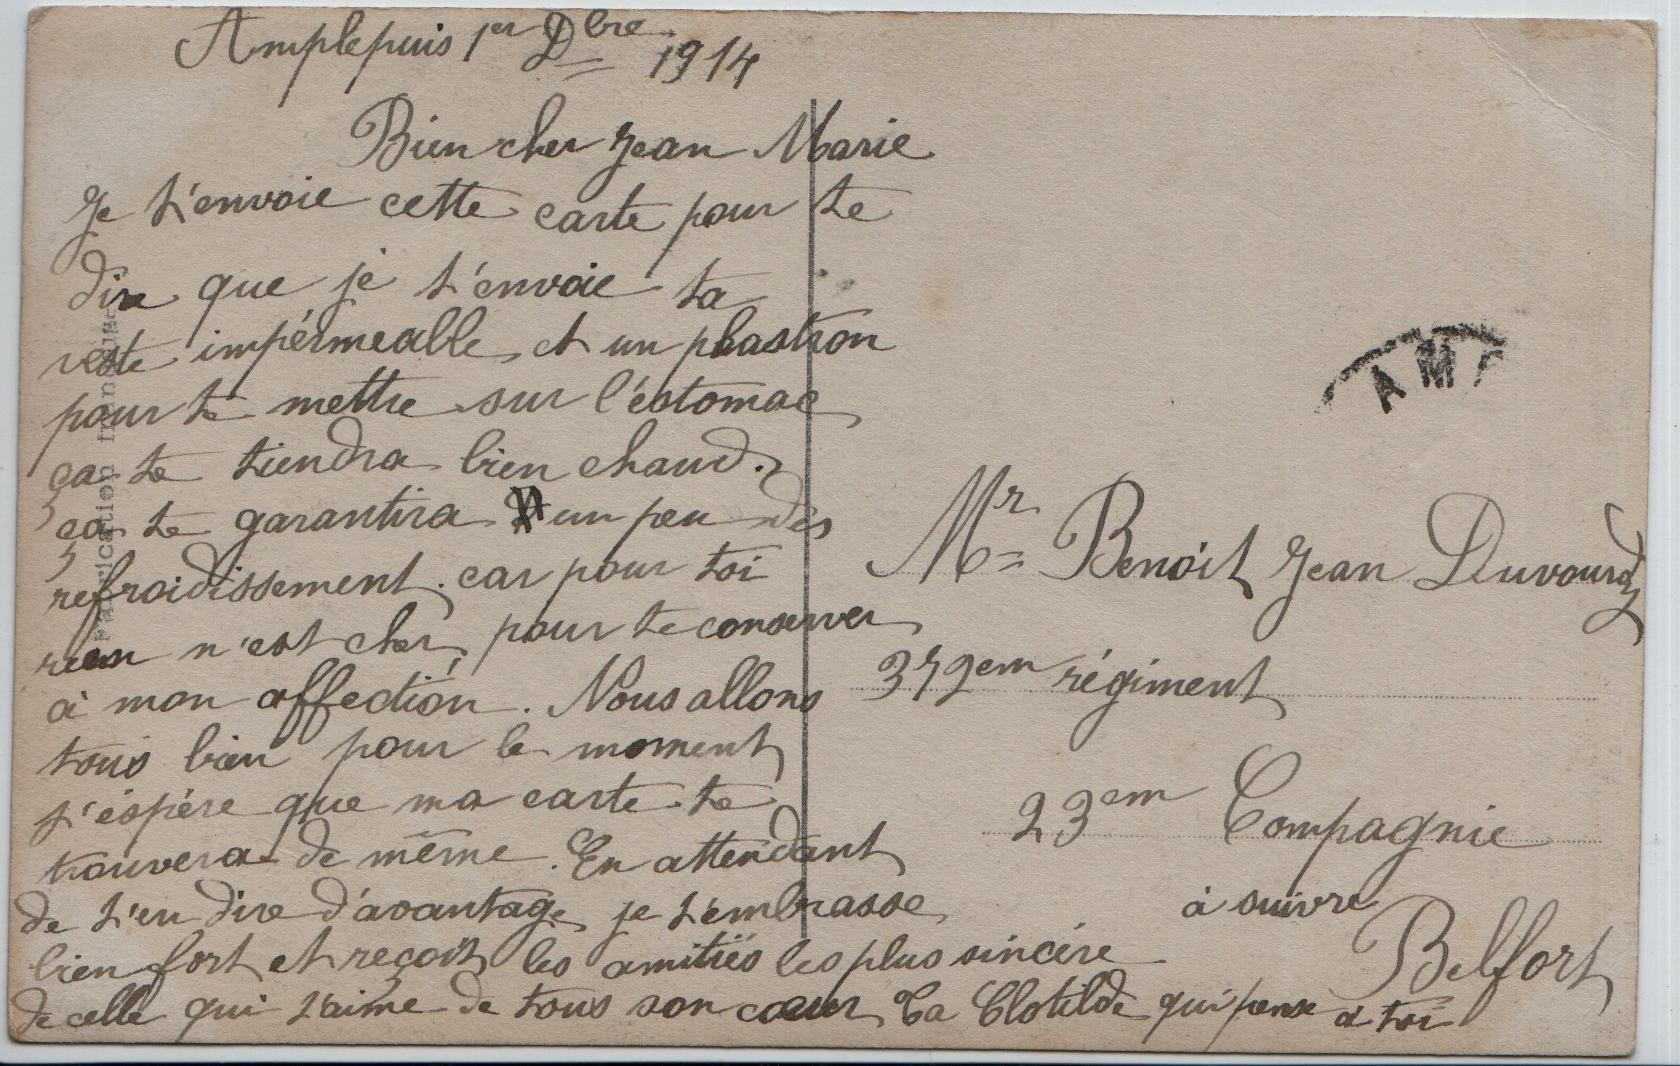 Amplepuis 1er Dbre 1914
Bien cher Jean Marie
Je t'envoie cette carte pour te
dire que je t'envoie ta
veste impérmeable et un plastron
pour te mettre sur l'éstomac
ça te tiendra bien chaud.
ça te garantira un peu des
refroidissement. car pour toi
rien n'est cher, pour te conserver
à mon affection. Nous allons
tous bien pour le moment
j'éspére que ma carte te
trouvera de même. En attendant
de t'en dire d'avantage, je t'embrasse
bien fort et reçoit les amitiés les plus sincére
de celle qui t'aime de tous son cœur Ta Clotilde qui pense a toi
AMP
Mr Benoit Jean Duvourdy
372em régiment
23em Compagnie
à suivre
Belfort
Fabrication française